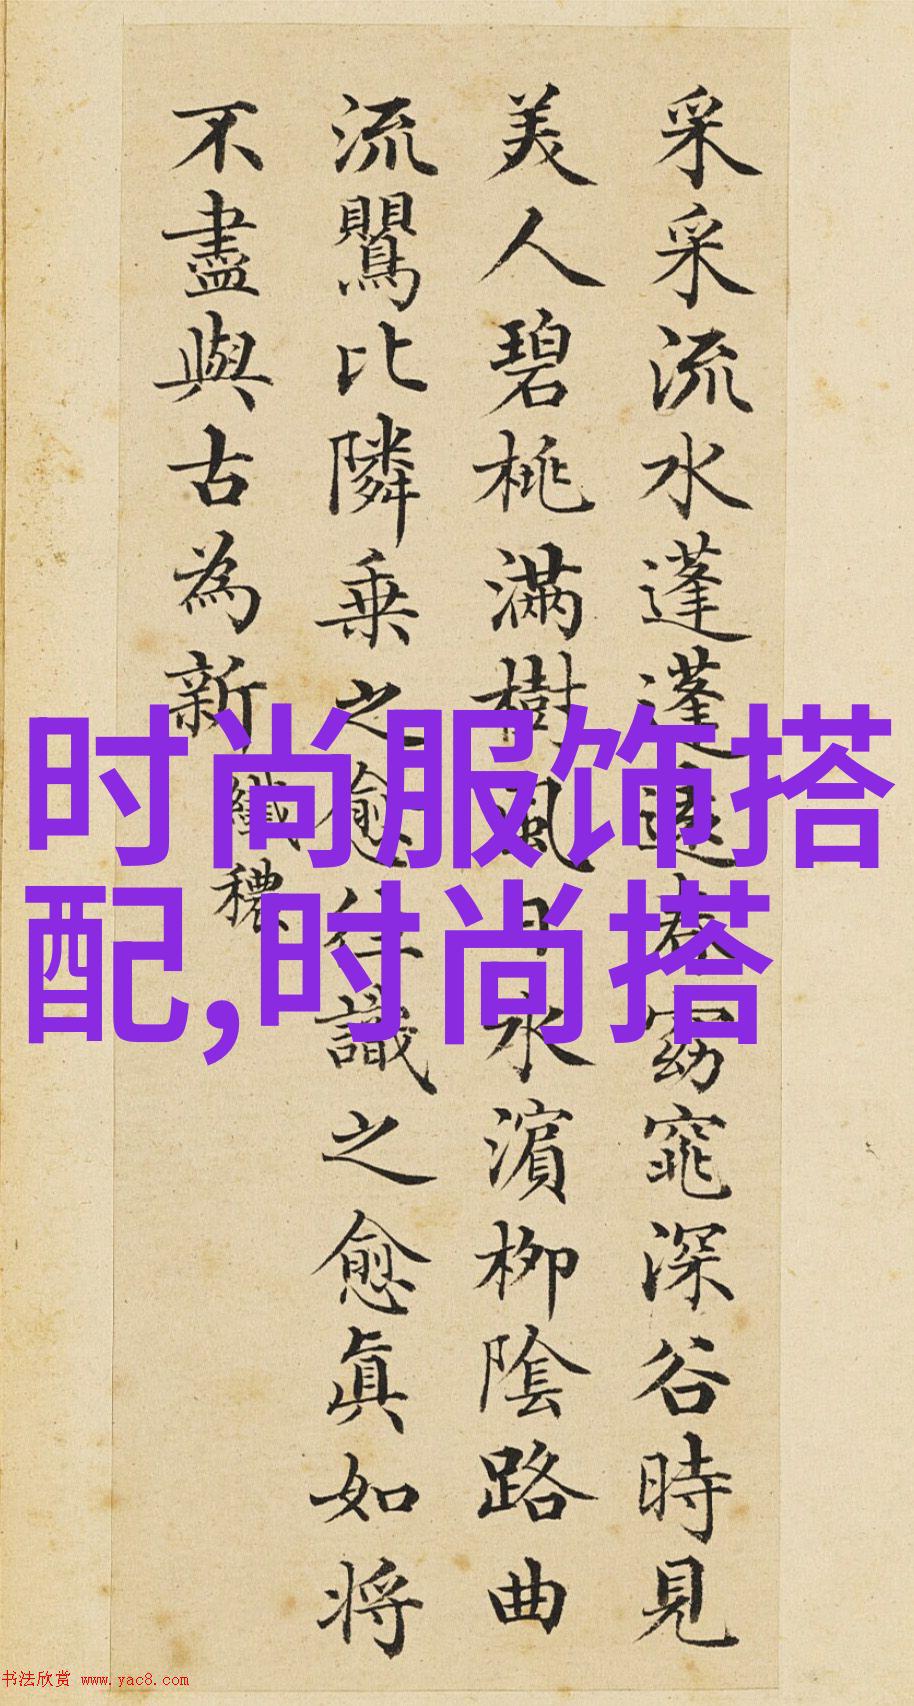 采采流水蓬蓬遠春窈窕深谷時見
美人碧桃滿樹風日水濱柳陰路曲
流鸎比隣乗之愈往識之愈眞如将
不盡與古為新 纖穠
时尚服饰搭
配,时尚搭
书法欣赏 www.yac8.com